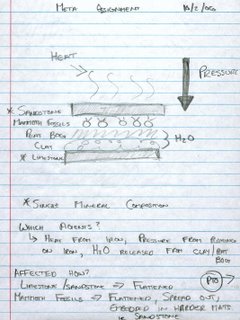 META ASSIGNMENT 10/2/06
HEAT
PRESSURE
* SANDSTONE
MAMMOTH FOSSILS
PEAT BOG
H2O
CLAY
* LIMESTONE
* SINGLE MINERAL COMPOSITION
WHICH AGENTS?
↳ HEAT FROM IRON, PRESSURE FROM
ON IRON, H2O RELEASED FROM CLAY/PEAT
BOG
AFFECTED HOW?
LIMESTONE/SANDSTONE ⇒ FLATTENED
MAMMOTH FOSSILS ⇒ FLATTENED, SPREAD OUT,
EMBEDDED IN HARDER MATS.
SANDSTONE